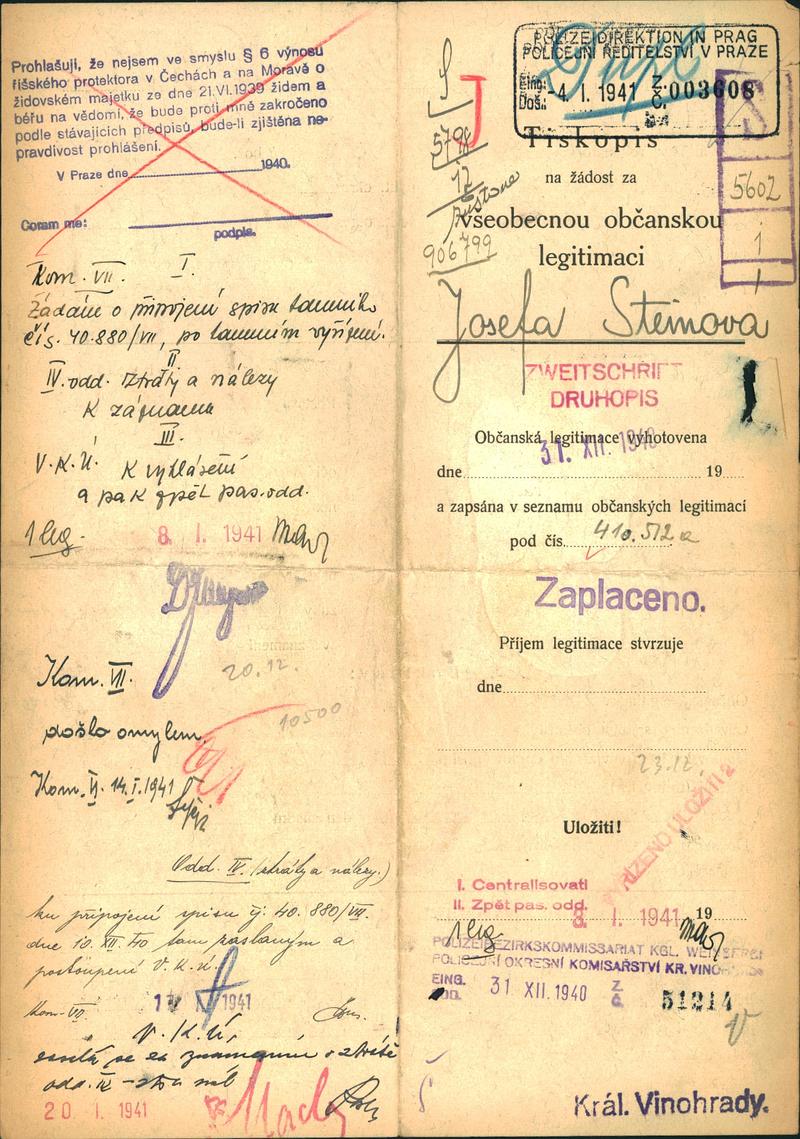 Prohlašuji, že nejsem ve smyslu § 6 výnosu
říšského protektora v Čechách a na Moravě o
židovském majetku ze dne 21.VI.1939 židem a
béřu na vědomí, že bude proti mně zakročeno
podle stávajících předpisů, bude-li zjištěna ne-
pravdivost prohlášení.
V Praze dne 1940.
Coram me:
podpis.
Kom. VII. I.
Žádám o připojení spisu tamního
čís. 40.880/VII, po tamním vyřízení.
II
IV. odd. ztráty a nálezy
K záznamu
III.
V.K.Ú. K vyhlášení
a pak zpět pas. odd.
1 leg. 8. I. 1941
20.12.
Kom. VII.
došlo omylem.
10500
Kom. 14.I.1941
Odd. IV. (ztráty a nálezy.)
ku připojení spisu čj. 40.880/VII.
dne 10.XII.40 tam zaslaným a
postoupení V.K.Ú.
Kom. VII. 1941
V.K.Ú.
odd. IV
20. I. 1941
POLIZEIDIREKTION IN PRAG
POLICEJNÍ ŘEDITELSTVÍ V PRAZE
Eing.: Doš.: -4. I. 1941 Z. Č. 003608
Dupl
J
5798
12
906799
5602
1
Tiskopis
na žádost za
všeobecnou občanskou
legitimaci
Josefa Steinova
ZWEITSCHRIFT
DRUHOPIS
Občanská legitimace vyhotovena
31. XII. 1940
dne 19
a zapsána v seznamu občanských legitimací
pod čís. 410.512 a
Zaplaceno.
Příjem legitimace stvrzuje
dne
23.12.
Uložiti!
VYŘÍZENO ULOŽITI
I. Centralisovati
II. Zpět pas. odd.
8. I. 1941 19
1 leg.
POLIZEIBEZIRKSKOMMISSARIAT KGL. WEINBERGE
POLICEJNÍ OKRESNÍ KOMISAŘSTVÍ KR. VINOHRADY
EING. DOŠ. 31 XII. 1940 Z. Č. 51214
Král. Vinohrady.